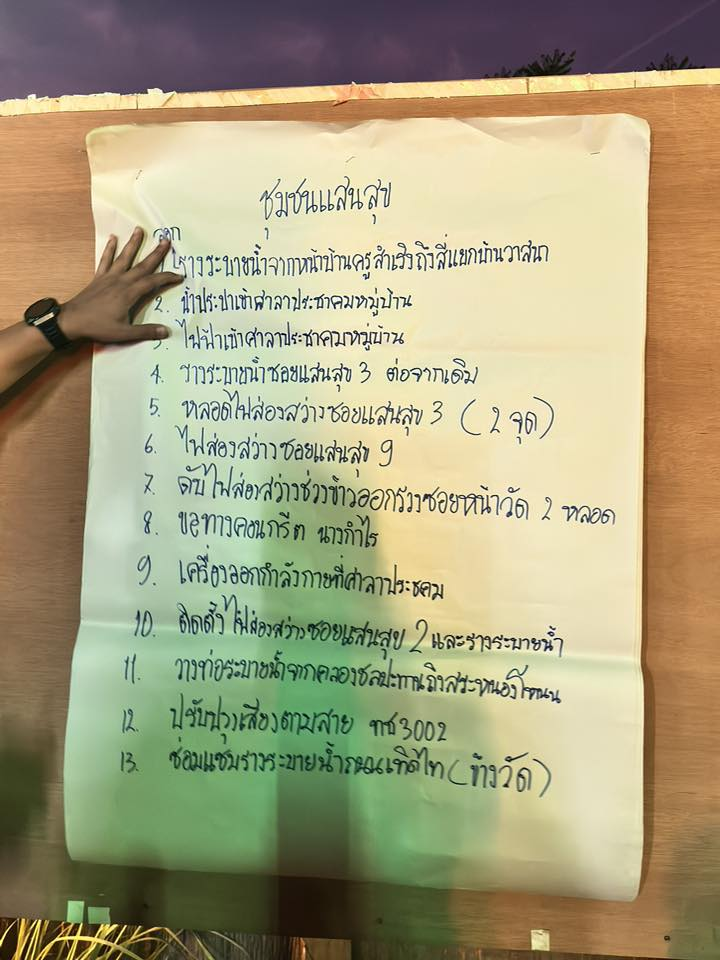 ชุมชนแสนสุข
1. รางระบายน้ำจากหน้าบ้านครูสำเริงถึงสี่แยกบ้านวาสนา
2. น้ำประปาเข้าศาลาประชาคมหมู่บ้าน
3. ไฟฟ้าเข้าศาลาประชาคมหมู่บ้าน
4. รางระบายน้ำซอยแสนสุข 3 ต่อจากเดิม
5. หลอดไฟส่องสว่างซอยแสนสุข 3 (2 จุด)
6. ไฟส่องสว่างซอยแสนสุข 9
7. ไฟส่องสว่างช่วง ซอยหน้าวัด 2 หลอด
8. ขอทางคอนกรีต นางกำไร
9. เครื่องออกกำลังกายที่ศาลาประชคม
10. ติดตั้งไฟส่องสว่างซอยแสนสุข 2 และรางระบายน้ำ
11. วางท่อระบายน้ำจากคลองชลประทานถึงสระหนอง
12. ปรับปรุงเสียงตามสาย ทช3002
13. ซ่อมแซมรางระบายน้ำถนนเทิดไท (ข้างวัด)